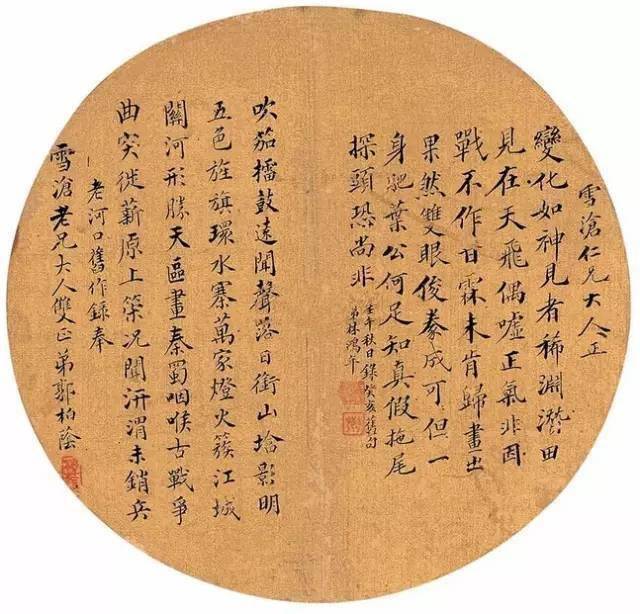 雪滄仁兄大人正
變化如神見者稀淵潛田
見在天飛偶噓正氣非因
戰不作甘霖未肯歸畫出
果然雙眼俊豢成可但一
身肥葉公何足知真假拖尾
探頭恐尚非
壬午秋日錄癸亥舊句
弟林鴻年
吹笳擂鼓遠聞聲落日銜山墖影明
五色旌旗環水寨萬家燈火簇江城
關河形勝天區畫秦蜀咽喉古戰爭
曲突徙薪原上策況聞汧渭未銷兵
老河口舊作錄奉
雪滄老兄大人雙正弟郭柏蔭